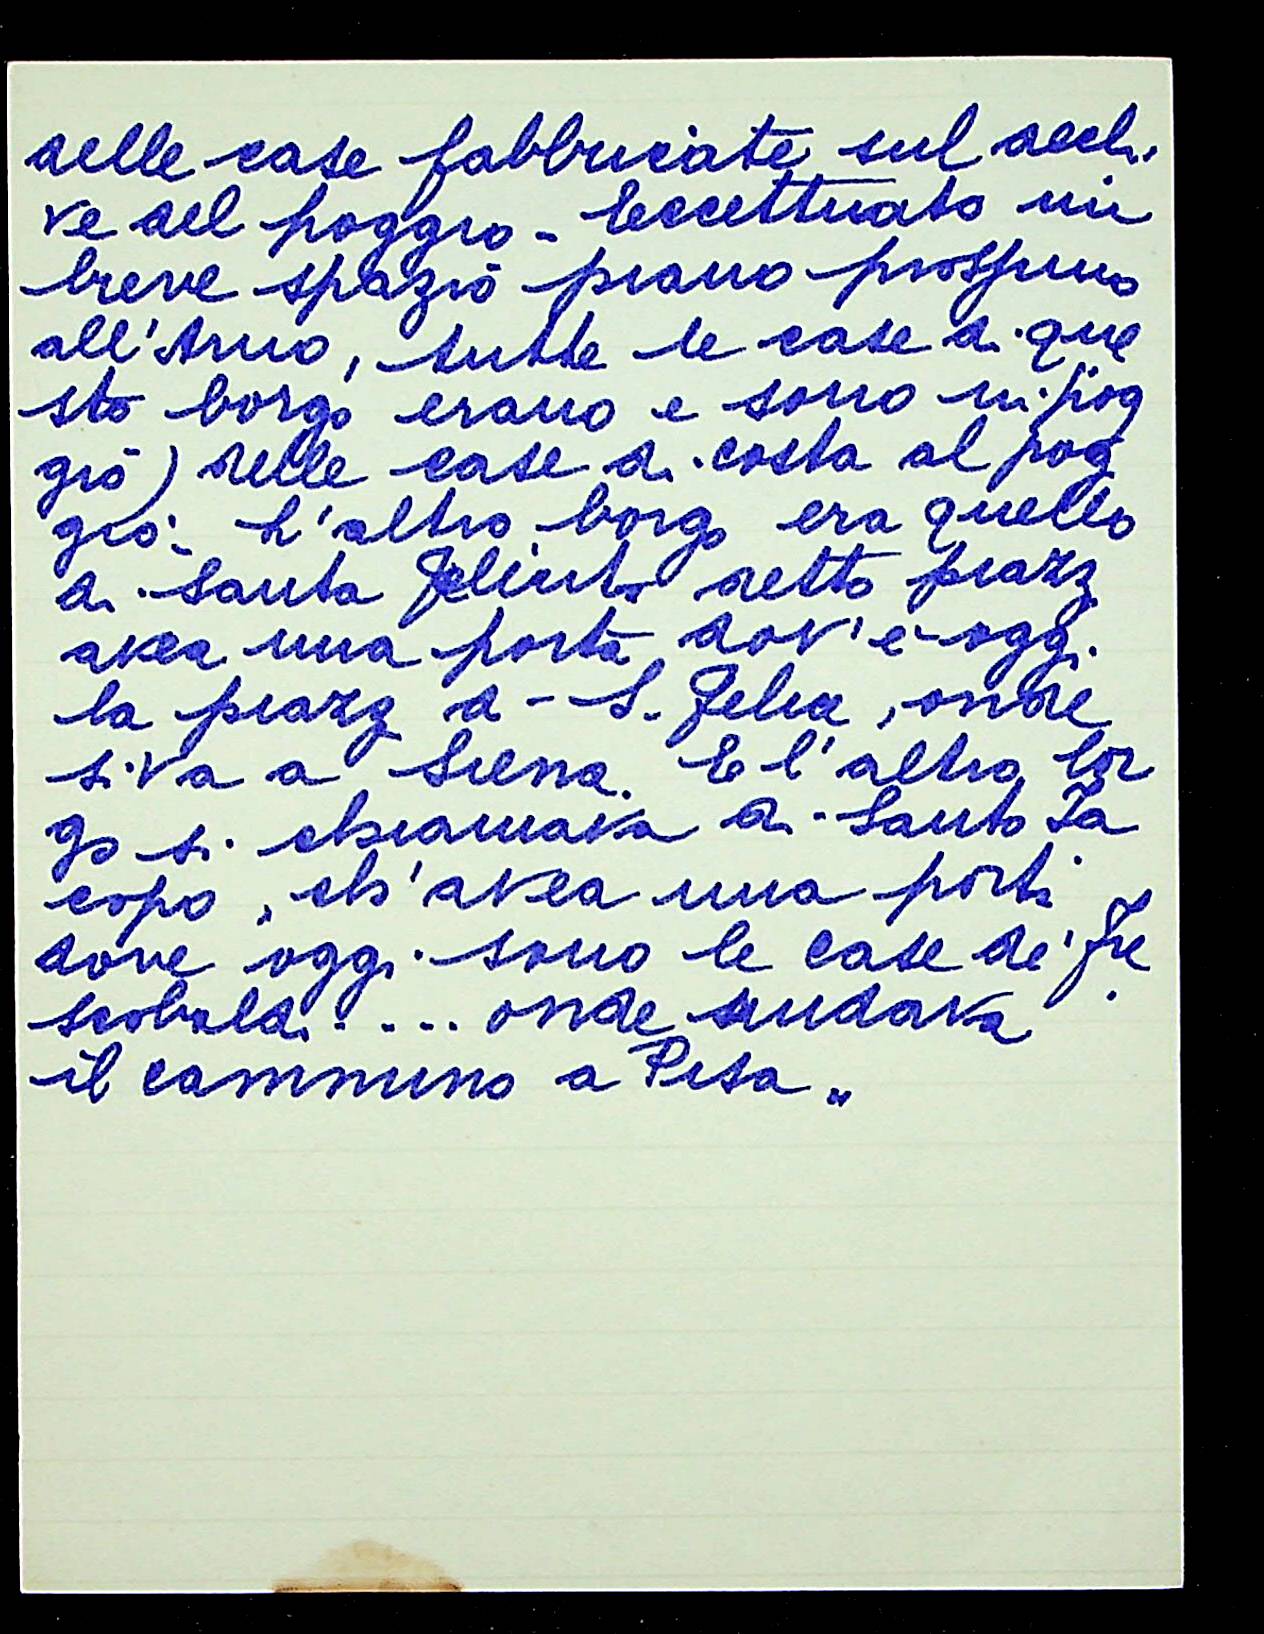 delle case fabbricate sul decli
ve del poggio - Eccettuato un
breve spazio piano prossimo
all'Arno, tutte le case di que
sto borgo erano e sono in pog
gio) delle case di costa al pog
gio. L'altro borgo era quello
di Santa Felicita detto piazz
avea una porta dov'è oggi
la piazz di S. Felice, onde
si va a Siena. E l'altro bor
go si chiamava di Santo Ia
copo, ch'avea una porta
dove oggi sono le case de' Fre
scobaldi .... onde andava
il cammino a Pisa"